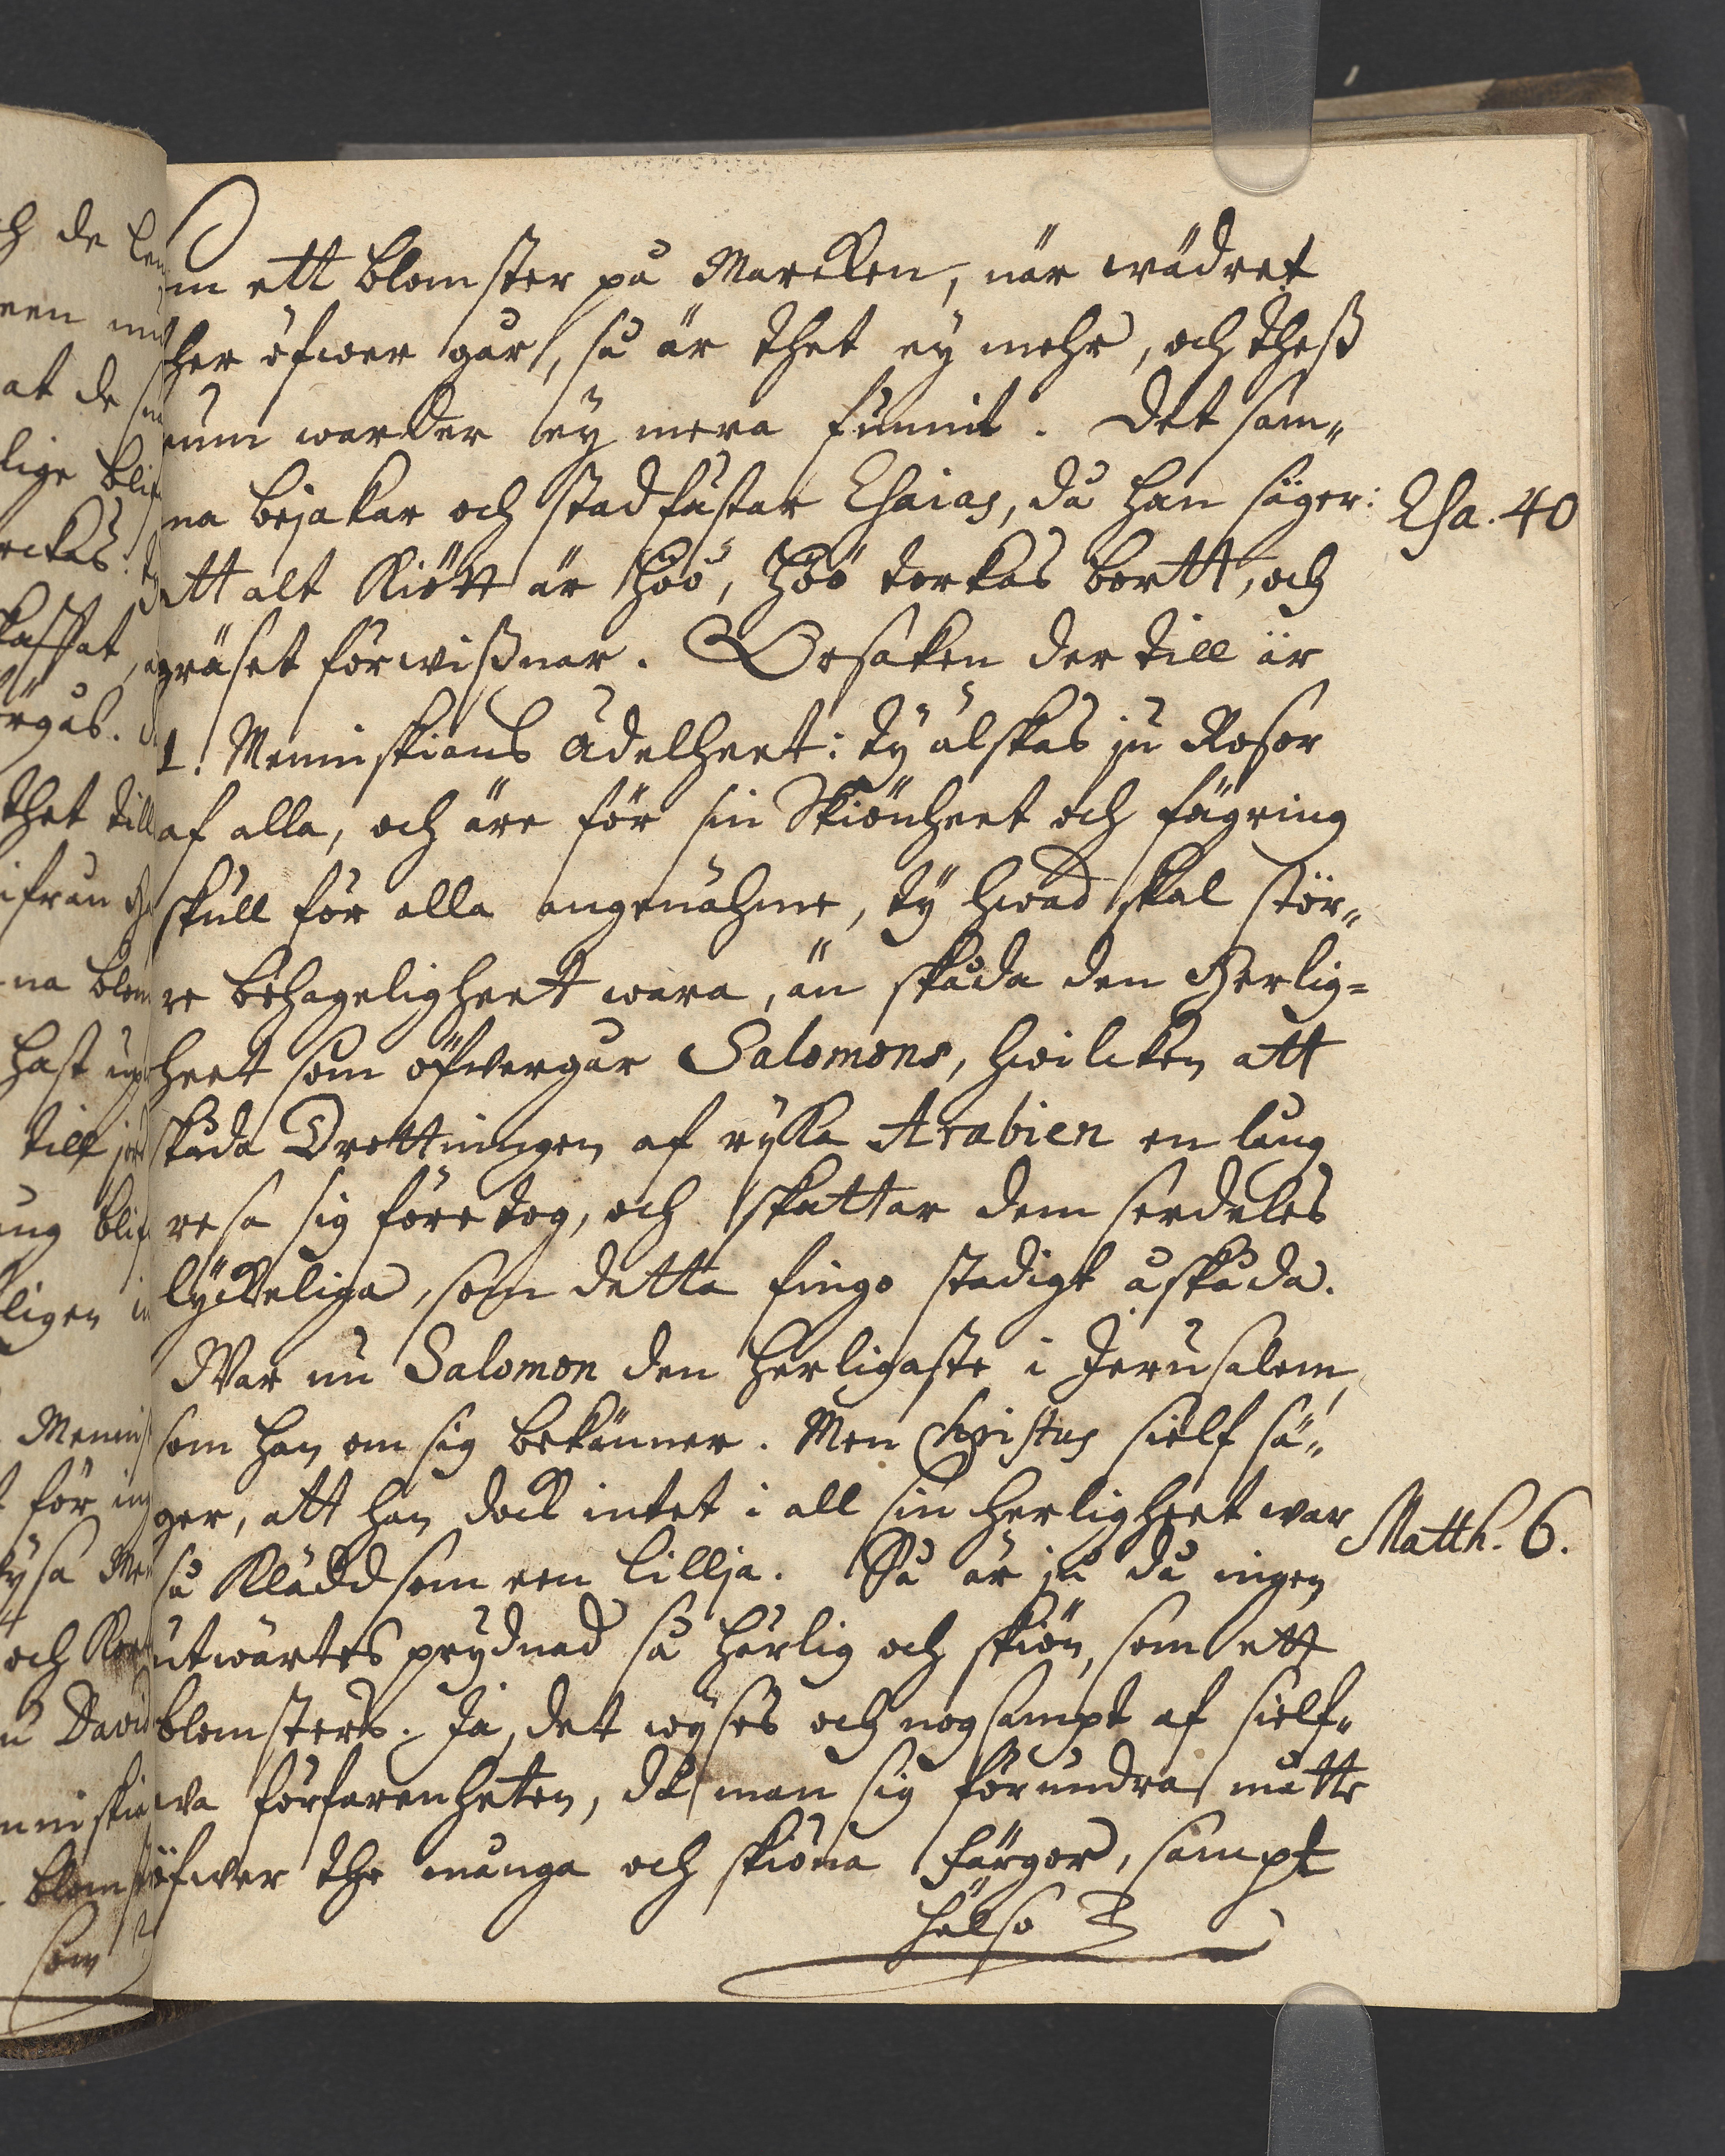 m ett blomster på Marcken, när wädret
ther öfwer går, så är thet ey mehr, och theß
rum warder ey mera funnit. Det sam„
na bejakar och stadfästar Esaias, då han säger:
Esa. 40
att alt Kiött är Höö, Höö torkas bortt, och
gräset förwißnar. Orsaken der till är
1. Menniskians Ädelheet: ty älskas ju Rosor
af alla, och äre för sin Skiönheet och fägring
skull för alla angenähme, ty hwad skal stör„
re behageligheet wara, än skåda den Herlig=
heet som öfwergår Salomons, hwilcken att
skåda Drottningen af ryka Arabien en lång
resa sig företog, och skattar dem serdeles
lyckeliga, som detta fingo stadigt åskåda.
War nu Salomon den herligaste i Jerusalem,
som han om sig bekänner. Men Christus sielf sä„
ger, att han dock intet i all sin herligheet war
Matth. 6.
så Klädd som een Lillja. Så är ju då ingen
utwärtes prydnad så härlig och skiön, som ett
blomsters. Ja, det wyses och nogsampt af sielf„
wa förfarenheten, då man sig förundra måtte
öfwer the många och skiöna färgor, sampt
hälso